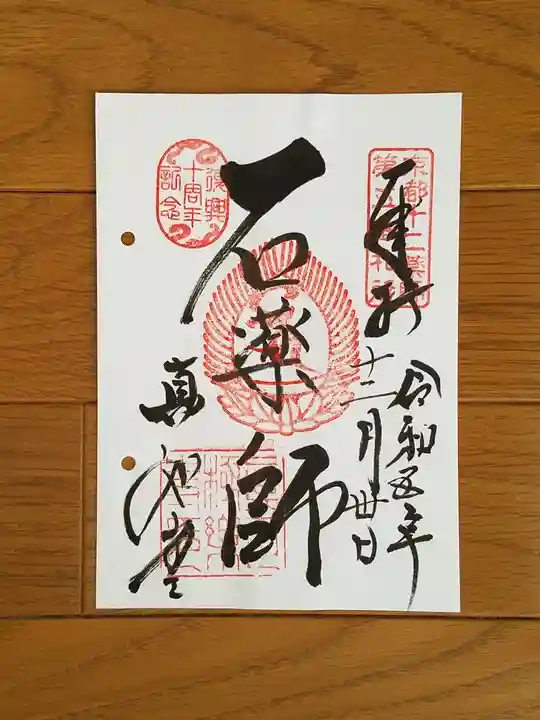 奉拝
令和五年
十二月卅日
石薬師
真如堂
京都十二薬師
第
復興
十周年
記念